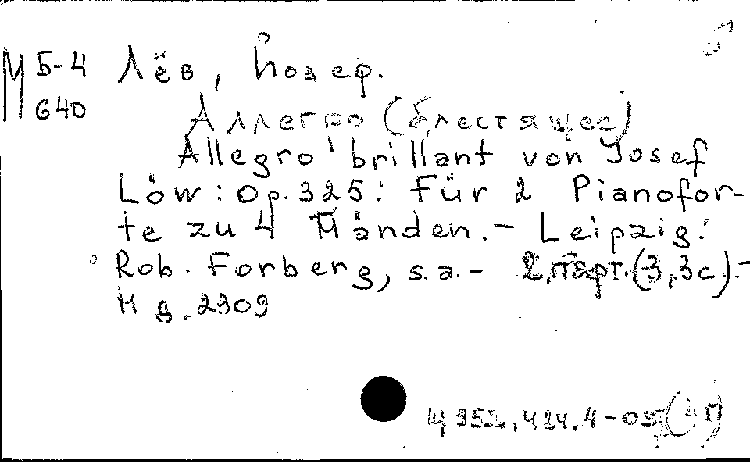 М 5-4 Лёв, Йозеф.
640 Аллегро (блестящее)
Allegro brillant von Josef
Löw: Op. 325: Für 2 Pianofor-
te zu 4 Händen. - Leipzig:
Rob. Forberg, s.a. - 2 парт. (3,3с) -
Н д. 2309
Ц 952.424.4-05